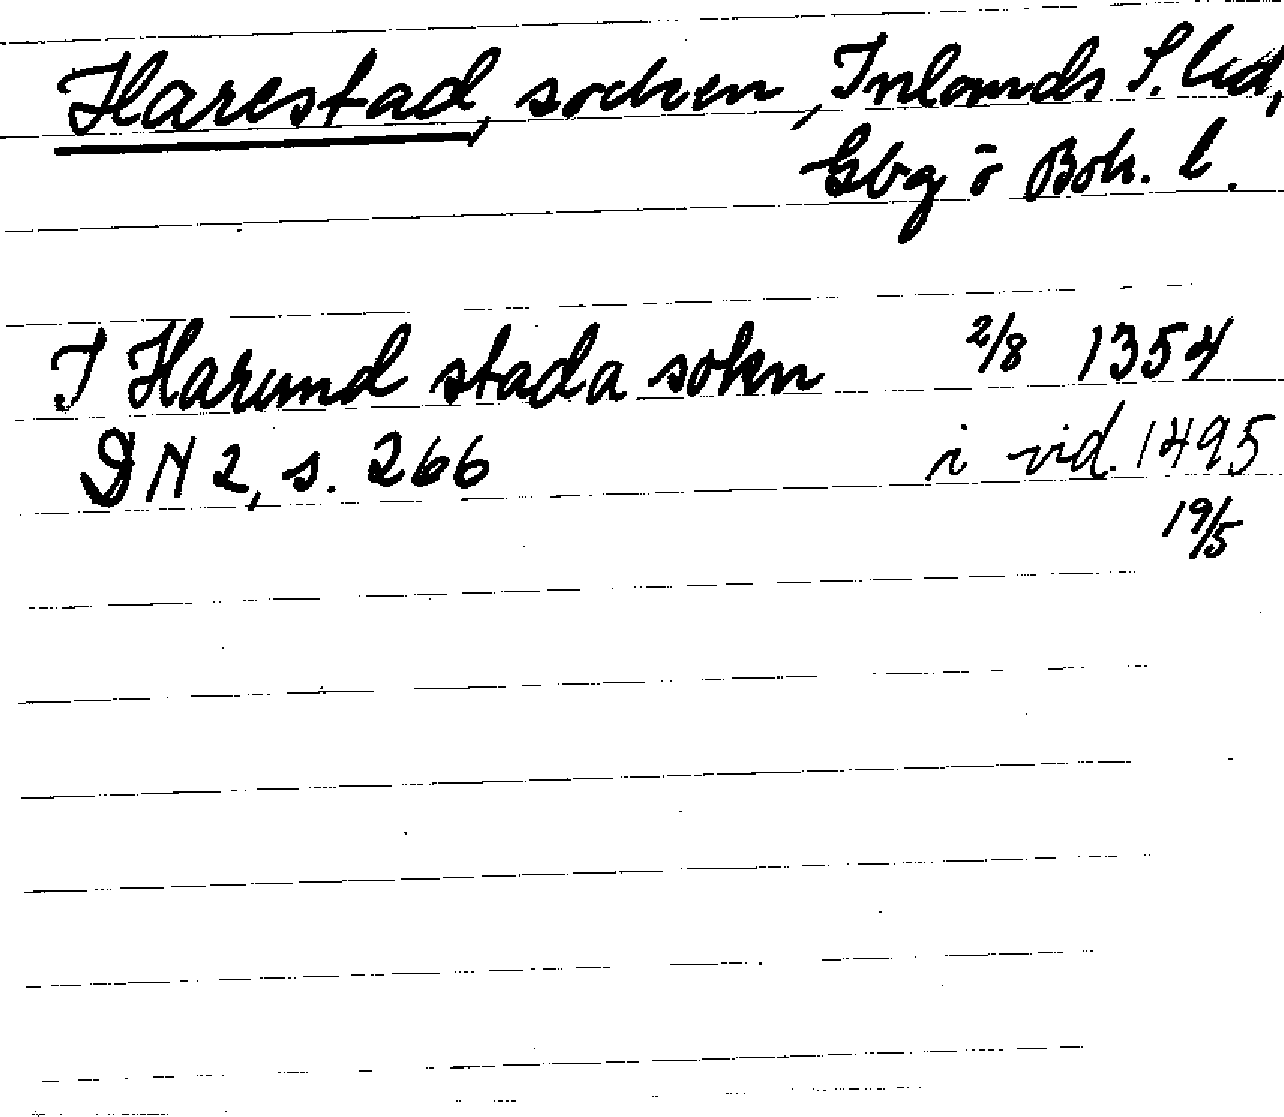 Harestad, socken, Inlands S. hd,
Gbg o Boh. l.
I Harund stada sokn 2/8 1354
DN 2, s. 266 i vid. 1495
19/5